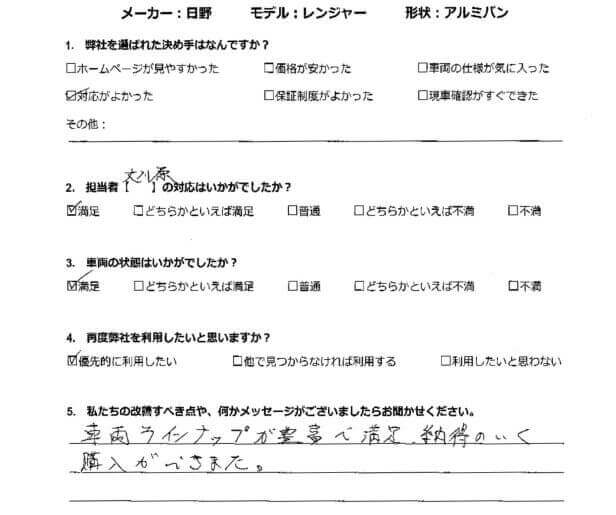 メーカー：日野 モデル：レンジャー 形状：アルミバン
1. 弊社を選ばれた決め手はなんですか？
□ホームページが見やすかった □価格が安かった □車両の仕様が気に入った
☑対応がよかった □保証制度がよかった □現車確認がすぐできた
その他：
2. 担当者【大川原】の対応はいかがでしたか？
☑満足 □どちらかといえば満足 □普通 □どちらかといえば不満 □不満
3. 車両の状態はいかがでしたか？
☑満足 □どちらかといえば満足 □普通 □どちらかといえば不満 □不満
4. 再度弊社を利用したいと思いますか？
☑優先的に利用したい □他で見つからなければ利用する □利用したいと思わない
5. 私たちの改善すべき点や、何かメッセージがございましたらお聞かせください。
車両ラインナップが豊富で満足、納得のいく
購入ができました。